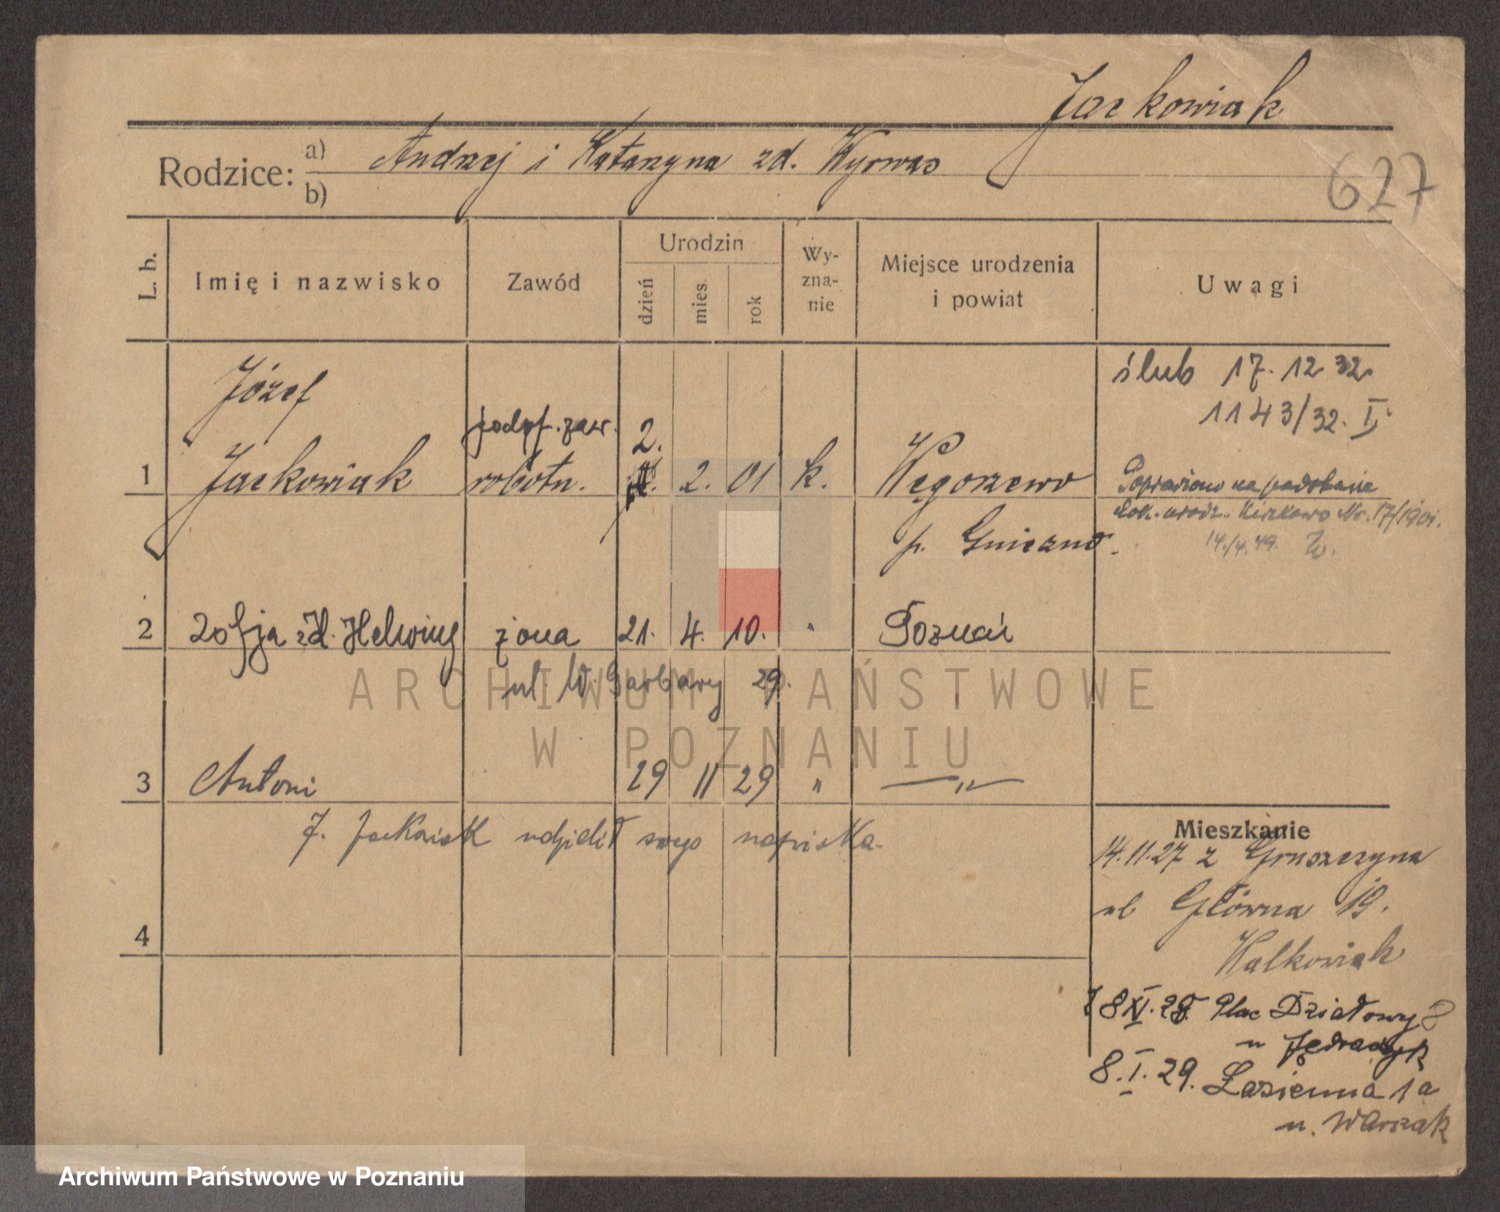 Jackowiak
Rodzice: a) Andrzej i Katarzyna zd. Wyrwas
b)
627
L. b.
Imię i nazwisko
Zawód
Urodzin
dzień
mies.
rok
Wy-
zna-
nie
Miejsce urodzenia
i powiat
Uwagi
ślub 17. 12 32.
1143/32. I.
Józef
podpf. zaw.
2.
1 Jackowiak robotn. 2. 01 k. Węgorzewo
p. Gniezno.
Poprawiono na podstawie
dok. urodz. Kiszkowo Nr. 17/1901.
14./4.49.
2 Zofja zd. Helwing żona 21. 4. 10. " Poznań
ul W. Garbary 29.
3 Antoni 29 11 29 " — " —
J. Jackowiak udzielił swego nazwiska.
4
Mieszkanie
14.11.27 z Gruszczyna
ul Główna 19.
Walkowiak
8 XI. 28 Plac Działowy 8
u Jędraszyk
8. I. 29. Łazienna 1a
u. Warszak
ARCHIWUM PAŃSTWOWE
W POZNANIU
Archiwum Państwowe w Poznaniu